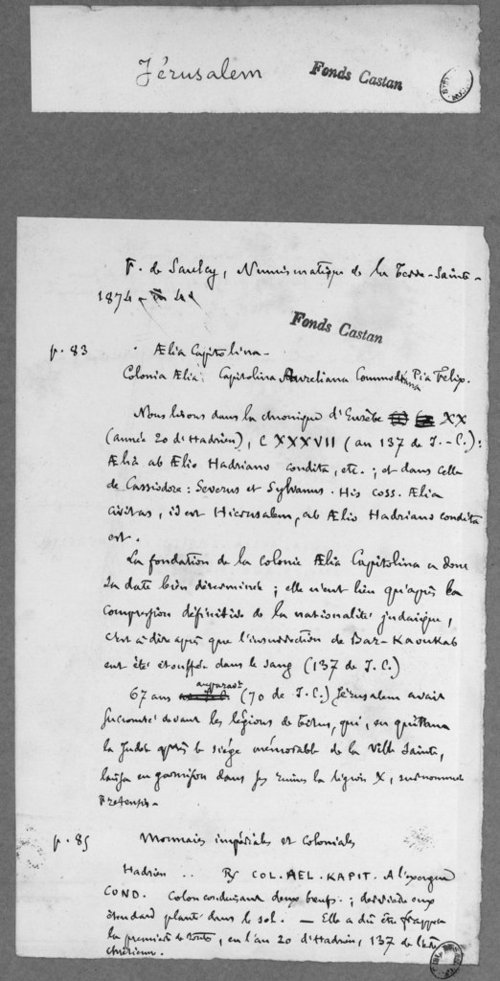 Jérusalem
Fonds Castan
F. de Saulcy, Numismatique de la Terre-Sainte-
1874 - in 4°
Fonds Castan
p. 83
Ælia Capitolina -
Colonia Ælia Capitolina Aureliana Commodiana Pia Felix.
Nous lisons dans la chronique d'Eusèbe XX
(année 20 d'Hadrien), CXXXVII (an 137 de J.-C.):
Ælia ab Ælio Hadriano condita, etc.; et dans celle
de Cassiodore: Severus et Sylvanus. His coss. Ælia
civitas, id est Hierusalem, ab Ælio Hadriano condita
est.
La fondation de la colonie Ælia Capitolina a donc
sa date bien déterminée; elle n'eut lieu qu'après la
compression définitive de la nationalité judaïque,
c'est-à-dire après que l'insurrection de Bar-Kaoukab
eut été étouffée dans le sang (137 de J.C.)
67 ans auparavt (70 de J.C.) Jérusalem avait
succombé devant les légions de Titus, qui, en quittant
la Judée après le siège mémorable de la Ville Sainte,
laissa en garnison dans ses ruines la légion X, surnommée
Fretensis.
p. 85
Monnaies impériales et coloniales
Hadrien .. R/ COL. AEL. KAPIT. A l'exergue
COND. Colon conduisant deux bœufs.; derrière eux
étendard planté dans le sol. — Elle a dû être frappée
la première de toutes, en l'an 20 d'Hadrien, 137 de l'ère
chrétienne.